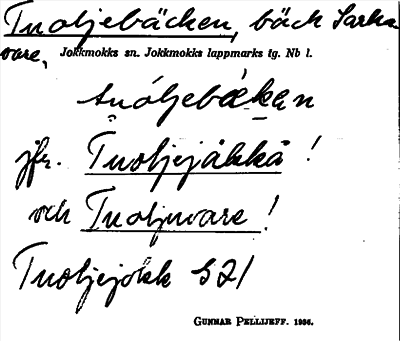 Tuoljebäcken, bäck Sarka
vare,
Jokkmokks sn. Jokkmokks lappmarks tg. Nb l.
tuoljebäkan
jfr. Tuoljejåkkå !
och Tuoljuvare !
Tuoljejokk S21
GUNNAR PELLIJEFF. 1956.